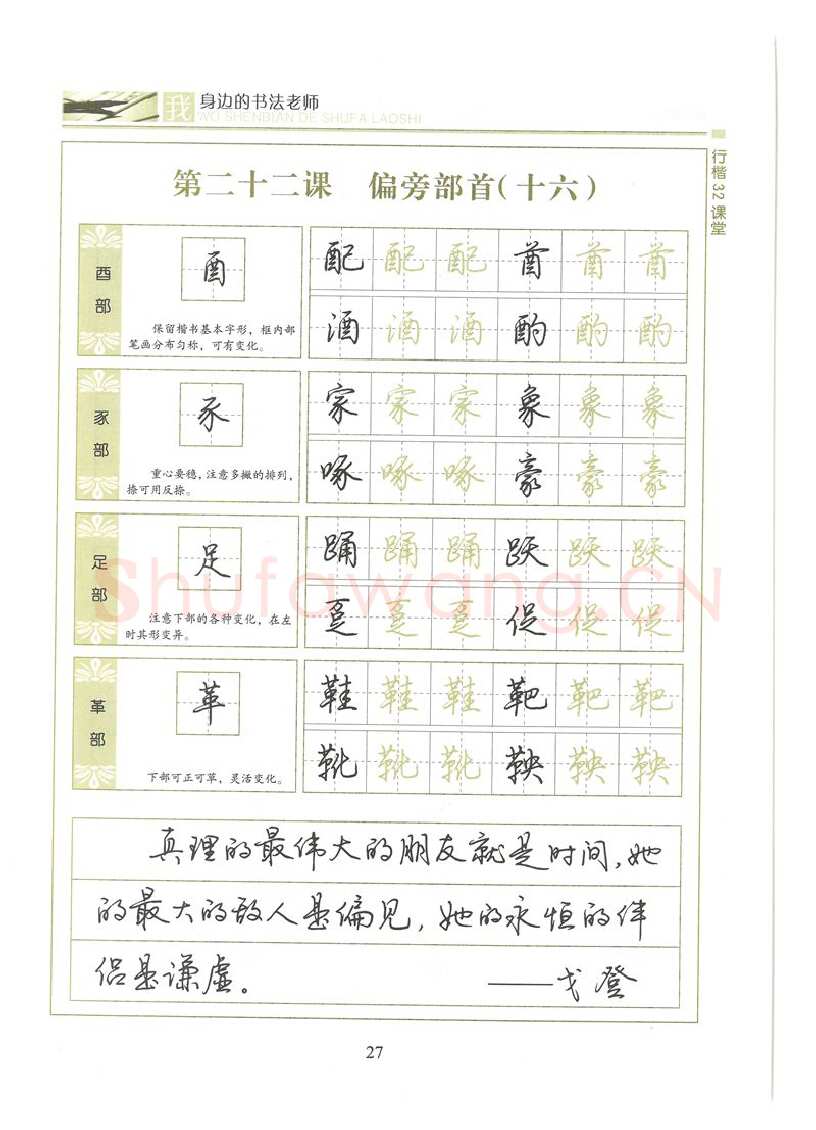 我 身边的书法老师
WO SHENBIAN DE SHUFA LAOSHI
行楷32课堂
第二十二课 偏旁部首(十六)
酉部
酉
保留楷书基本字形，框内部
笔画分布匀称，可有变化。
配 配 配 酋 酋 酋
酒 酒 酒 酌 酌 酌
豕部
豕
重心要稳，注意多撇的排列，
捺可用反捺。
家 家 家 象 象 象
啄 啄 啄 豪 豪 豪
足部
足
注意下部的各种变化，在左
时其形变异。
踊 踊 踊 跃 跃 跃
趸 趸 趸 促 促 促
革部
革
下部可正可草，灵活变化。
鞋 鞋 鞋 靶 靶 靶
靴 靴 靴 鞅 鞅 鞅
真理的最伟大的朋友就是时间，她
的最大的敌人是偏见，她的永恒的伴
侣是谦虚。 ——戈登
Shufawang.CN
27